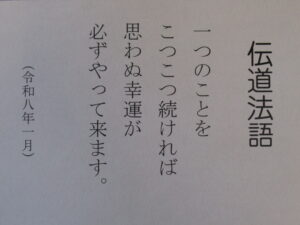 伝道法語
一つのことを
こつこつ続ければ
思わぬ幸運が
必ずやって来ます。
(令和八年一月)